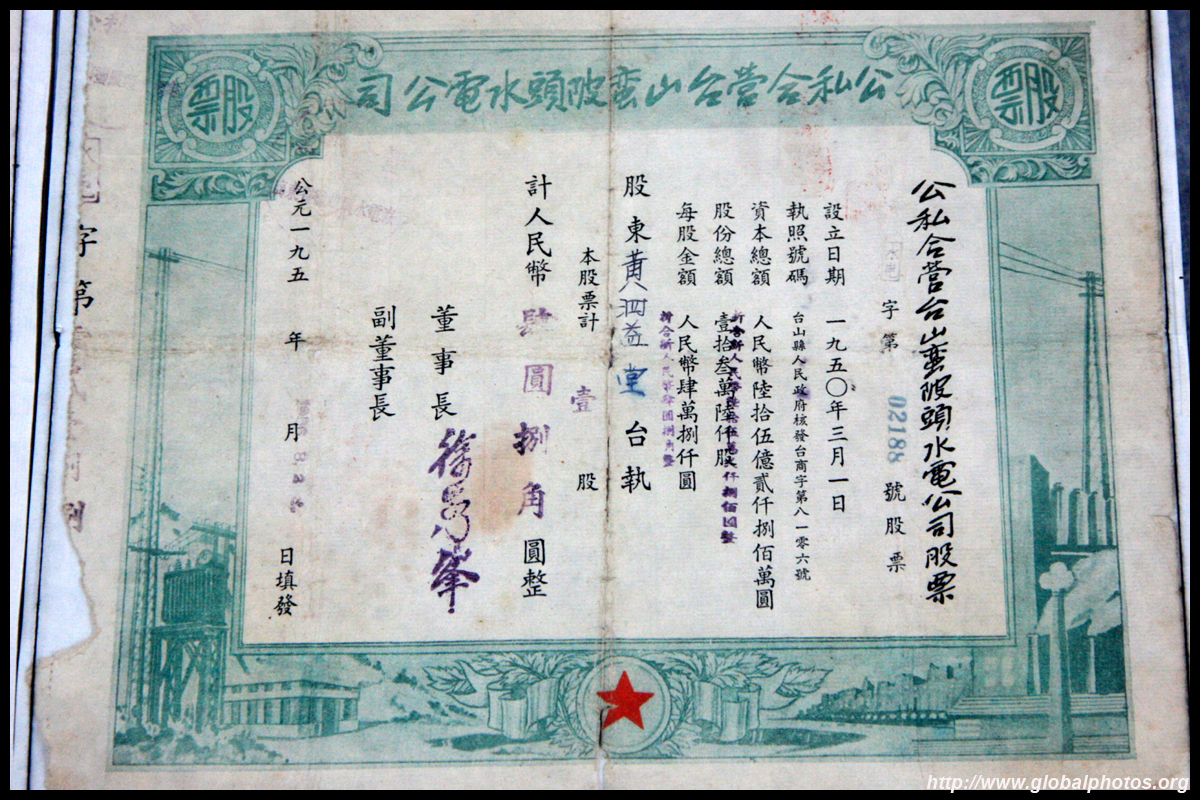 公私合營台山蛮陂頭水電公司
股票
股票
公私合營台山蛮陂頭水電公司股票
字第 02188 號股票
設立日期 一九五〇年三月一日
執照號碼 台山縣人民政府核發台商字第八一零六號
資本總額 人民幣陸拾伍億貳仟捌佰萬圓
折合新人民幣陸拾伍萬貳仟捌佰圓整
股份總額 壹拾叁萬陸仟股
每股金額 人民幣肆萬捌仟圓
折合新人民幣肆圓捌角整
股東 黃 益堂 台執
本股票計 壹 股
計人民幣 肆圓捌角圓整
董事長
副董事長
公元一九五 年 月 日填發
字第
http://www.globalphotos.org